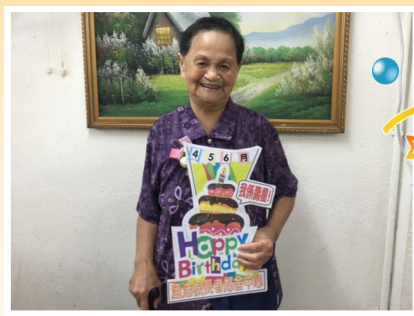 4 5 6 月
我係壽星!
Happy
Birthday